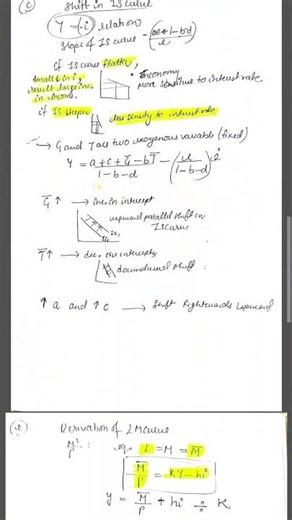 (c) Shift in IS curve
Y - (i) relation
slope of IS curve - (1-b-d)
e
if IS curve flatter,
small Δ in i,
result large inc.
in income.
• Economy
More sensitive to interest rate
if IS steeper
less sensity to interest rate
→ G and T are two exogenous variable (fixed)
Y = a + c + G̅ - bT̅ - (e) i
1-b-d 1-b-d
G̅ ↑ → inc. in intercept
upward parallel shift in
IS curve
T̅ ↑ → dec. the intercepts
downward shift
↑ a and ↑ c → shift Rightwards Upward
Derivation of LM curve
M̅ˢ/P : L = M = M̅
M̅/P = KY - hi
y = M̅/P + hi ÷ K